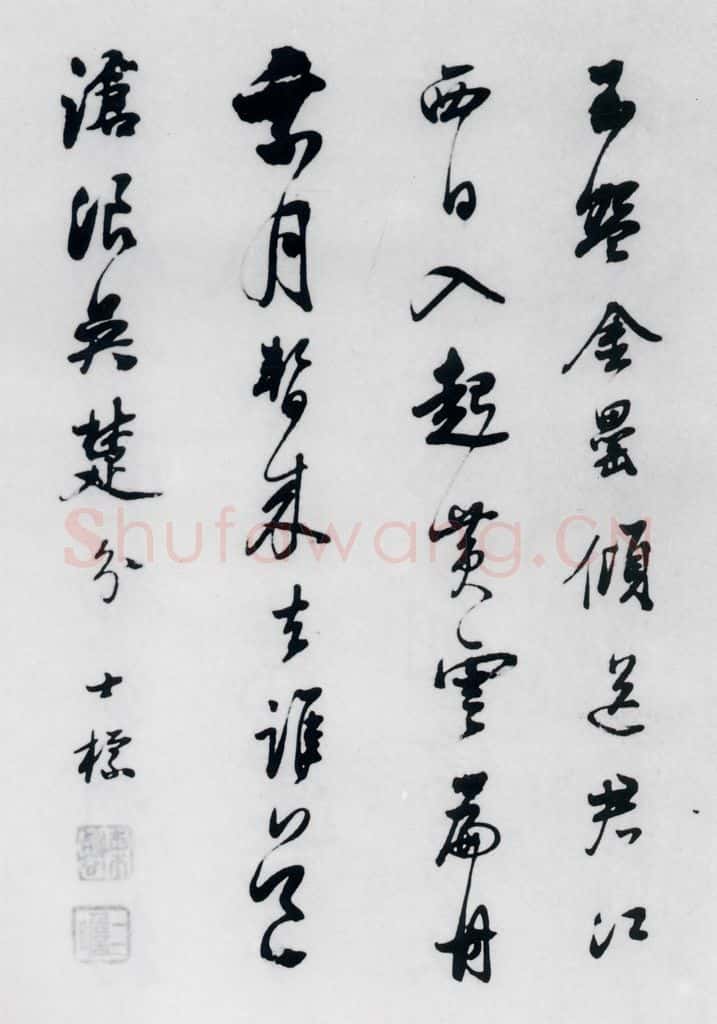 玉盌金罍傾送君江
西日入起黃雲扁舟
乘月暫來去誰道
滄浪吳楚分 士標
Shufawang.CN